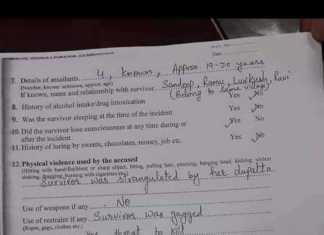 7. Details of assailants 4, known, Approx 19-30 years
(Number, known/unknown, approx. age)
If known, name and relationship with survivor Sandeep, Ramu, Luvkush, Ravi
(Belong to Same village)
8. History of alcohol intake/drug intoxication Yes No
9. Was the survivor sleeping at the time of the incident Yes No
10. Did the survivor lose consciousness at any time during or Yes No
after the incident.
11. History of luring by sweets, chocolates, money, job etc. Yes No
12. Physical violence used by the accused
Survivor was strangulated by her dupatta
Use of weapons if any No
Use of restraint if any Survivor was gagged
(Ropes, gags, clothes etc.)
threat to kill